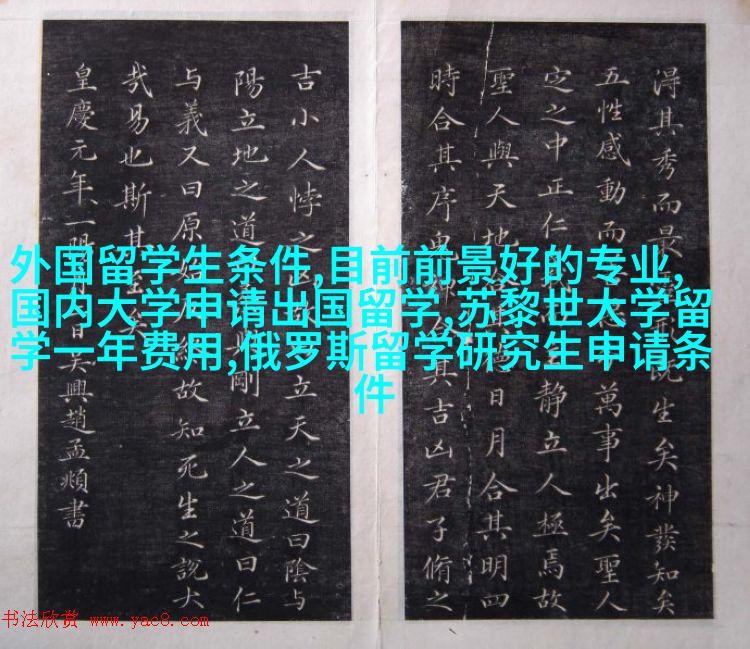 淂其秀而最既生矣神發知矣
五性感動而萬事出矣聖人
定之中正仁靜立人極焉故
聖人與天地合日月合其明四
時合其序鬼神合其吉凶君子脩之
吉小人悖之立天之道曰陰与
陽立地之道剛立人之道曰仁
与義又曰原始故知死生之說大
哉易也斯其至矣
皇慶元年一陽月日吴興趙孟頫書
外国留学生条件,目前前景好的专业,
国内大学申请出国留学,苏黎世大学留
学一年费用,俄罗斯留学研究生申请条
件
书法欣赏 www.yac8.com